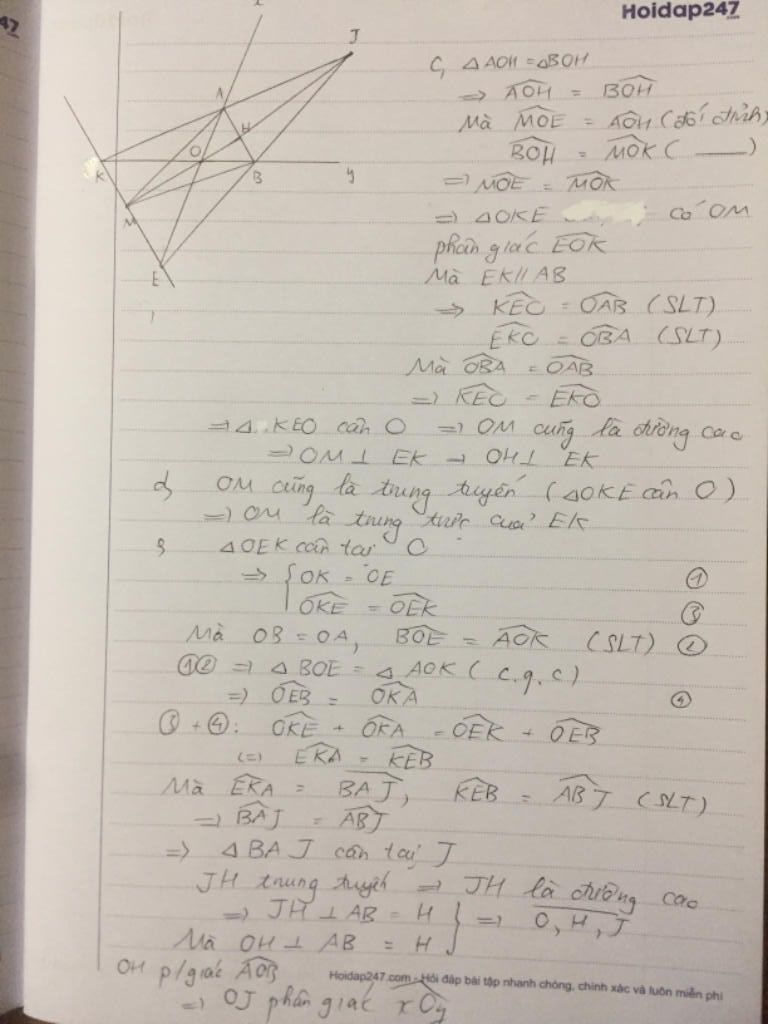 47
Hoidap247
x
J
A
H
O
K
B
y
M
E
C, △AOH = △BOH
⇒ \widehat{AOH} = \widehat{BOH}
Mà \widehat{MOE} = \widehat{AOH} (đối đỉnh)
\widehat{BOH} = \widehat{MOK} ( —— )
⇒ \widehat{MOE} = \widehat{MOK}
⇒ △OKE có OM
phân giác \widehat{EOK}
Mà EK // AB
⇒ \widehat{KEO} = \widehat{OAB} (SLT)
\widehat{EKO} = \widehat{OBA} (SLT)
Mà \widehat{OBA} = \widehat{OAB}
⇒ \widehat{KEO} = \widehat{EKO}
⇒ △KEO cân O ⇒ OM cũng là đường cao
⇒ OM ⊥ EK → OH ⊥ EK
d, OM cũng là trung tuyến (△OKE cân O)
⇒ OM là trung trực của EK
△OEK cân tại O
⇒ { OK = OE ①
\widehat{OKE} = \widehat{OEK} ③
Mà OB = OA, \widehat{BOE} = \widehat{AOK} (SLT) ②
①② ⇒ △BOE = △AOK (c.g.c)
⇒ \widehat{OEB} = \widehat{OKA} ④
③ + ④: \widehat{OKE} + \widehat{OKA} = \widehat{OEK} + \widehat{OEB}
(=) \widehat{EKA} = \widehat{KEB}
Mà \widehat{EKA} = \widehat{BAJ}, \widehat{KEB} = \widehat{ABJ} (SLT)
⇒ \widehat{BAJ} = \widehat{ABJ}
⇒ △BAJ cân tại J
JH trung tuyến ⇒ JH là đường cao
⇒ JH ⊥ AB = H } ⇒ \overline{O, H, J}
Mà OH ⊥ AB = H
OH p/giác \widehat{AOB}
⇒ OJ phân giác \widehat{xOy}
Hoidap247.com - Hỏi đáp bài tập nhanh chóng, chính xác và luôn miễn phí